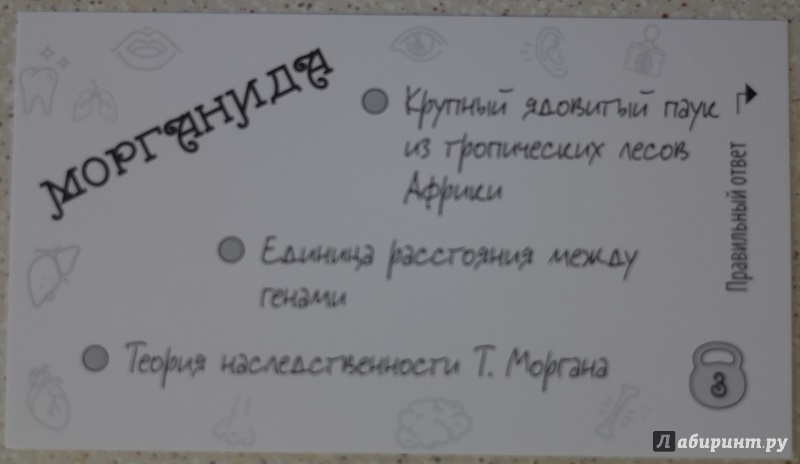 МОРГАНИДА
Крупный ядовитый паук
из тропических лесов
Африки
Единица расстояния между
генами
Теория наследственности Т. Моргана
Правильный ответ
3
Лабиринт.ру